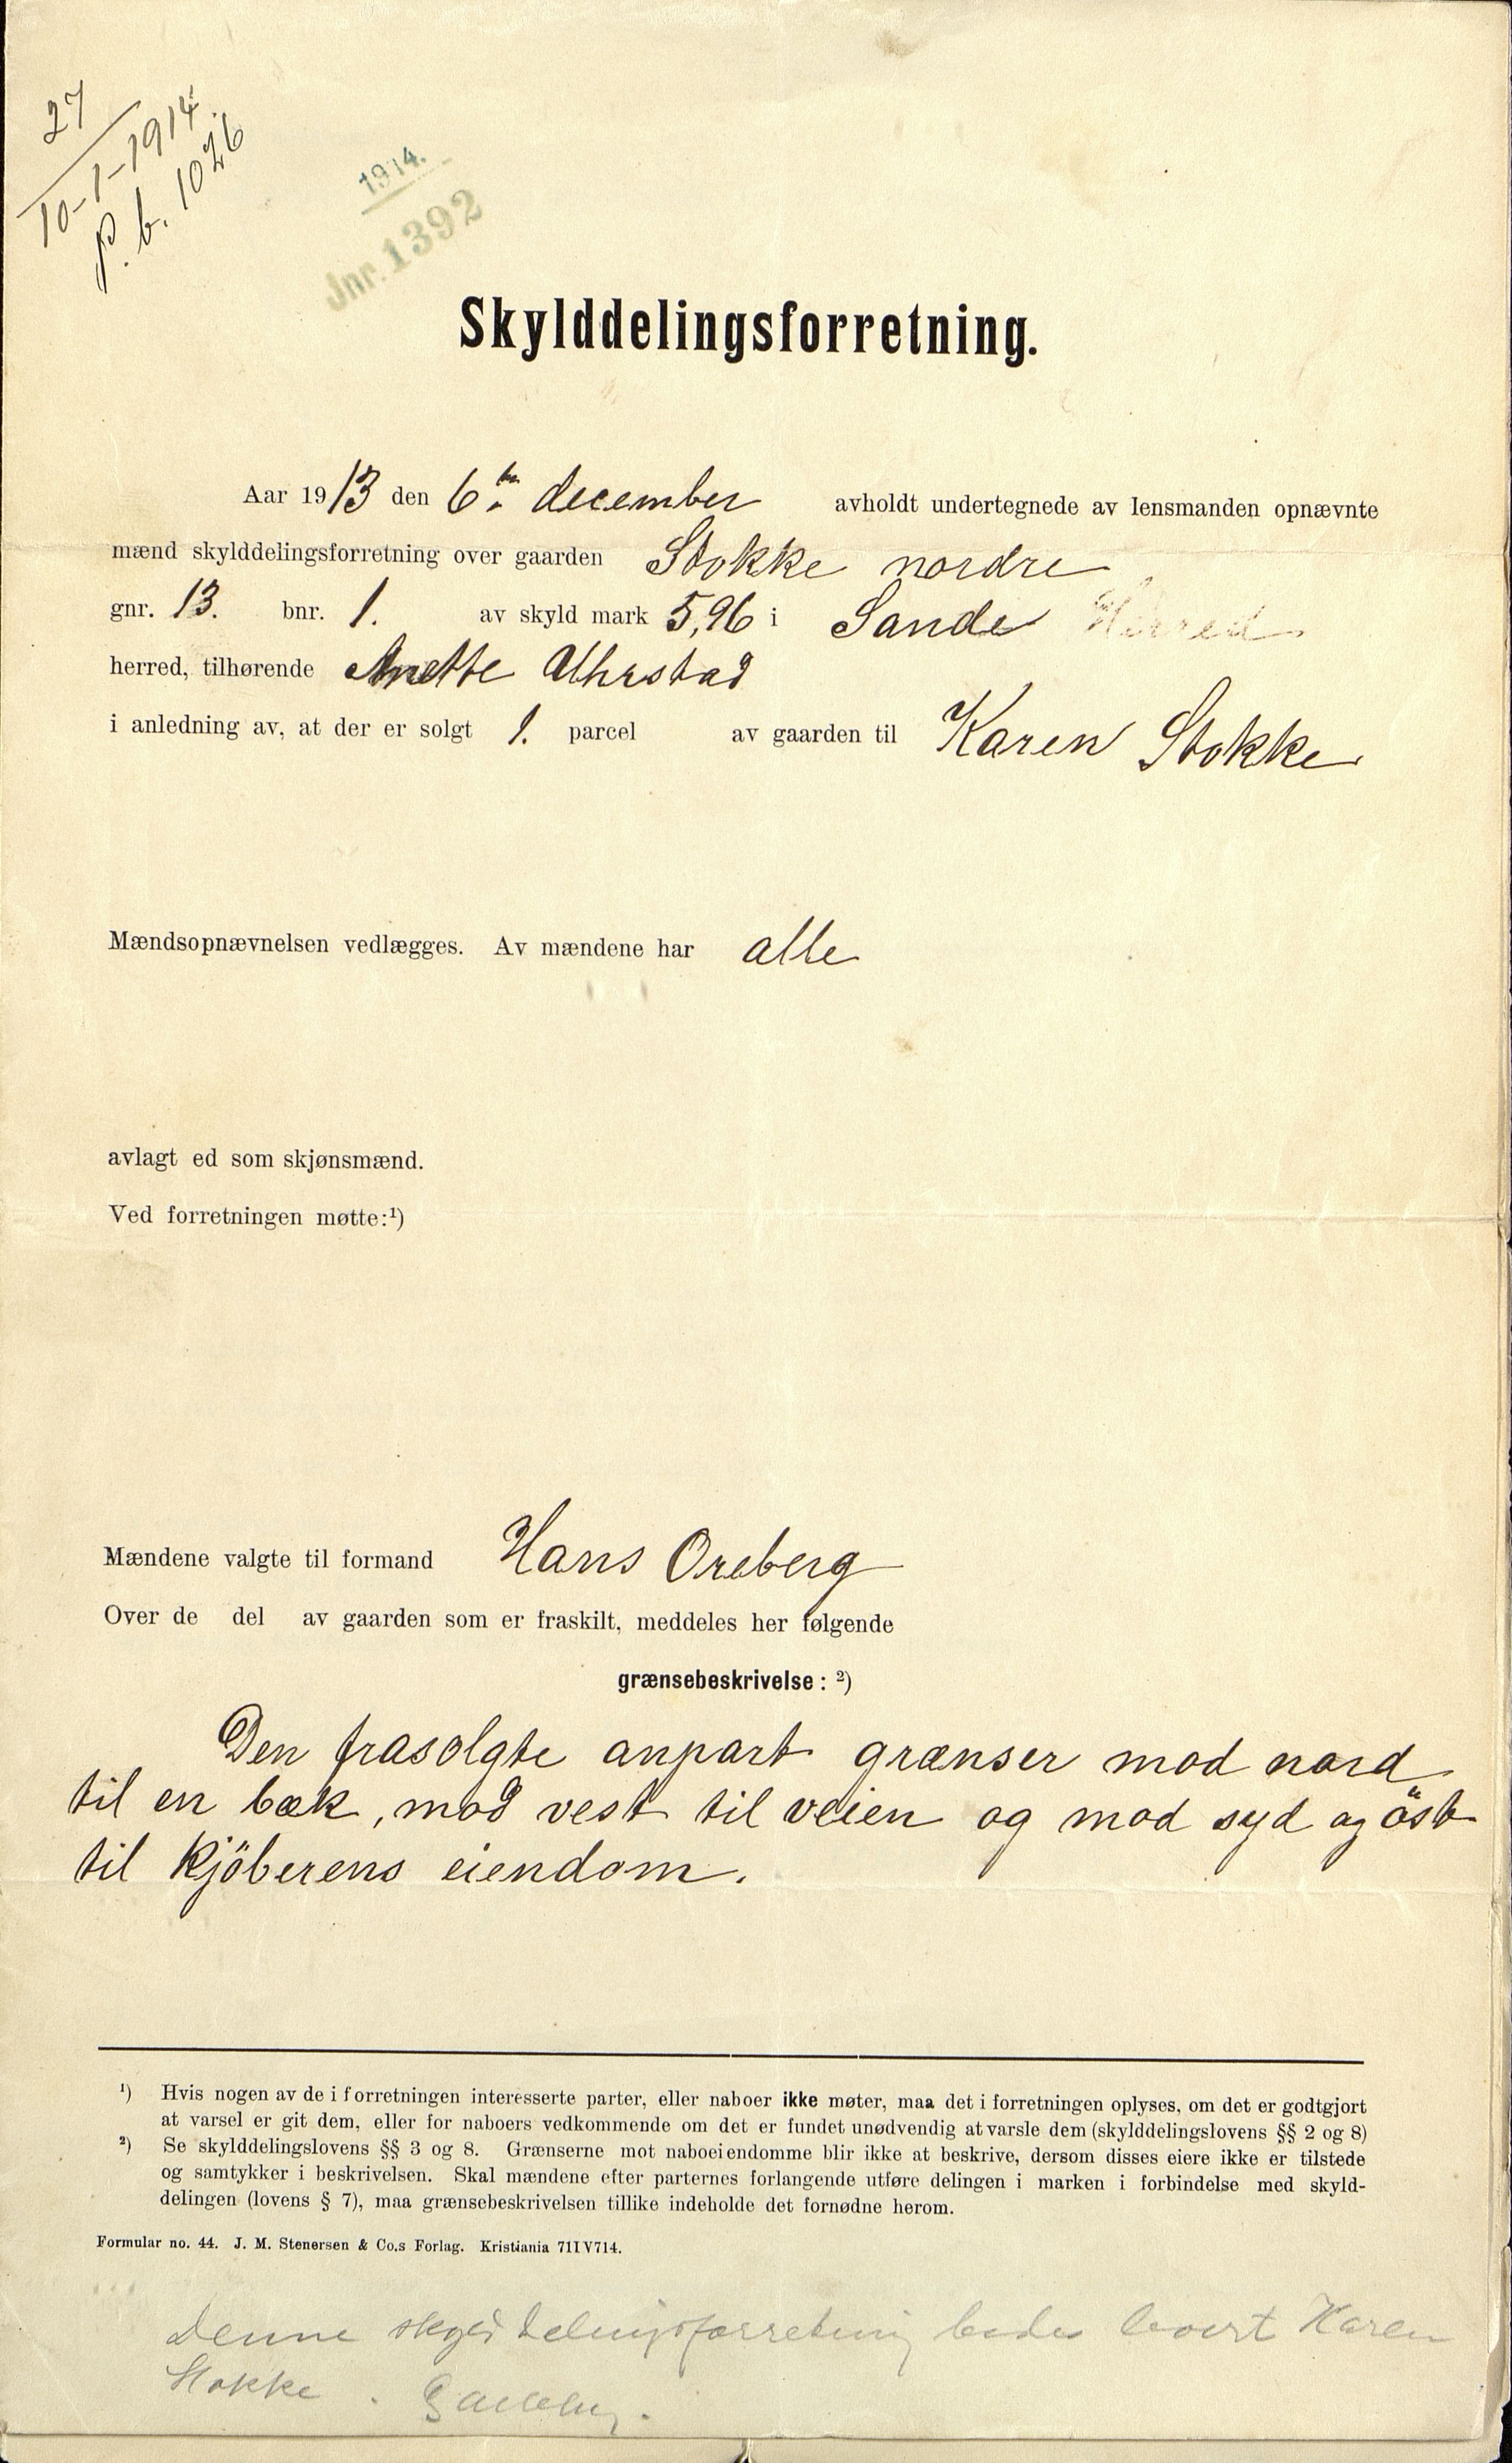 27
10-1-1914.
P. b. 1026
1914.
Jnr. 1392
Skylddelingsforretning.
Aar 1913 den 6te december avholdt undertegnede av lensmanden opnævnte
mænd skylddelingsforretning over gaarden Stokke nordre
gnr. 13. bnr. 1. av skyld mark 5,96 i Sande Herred
herred, tilhørende Anette Uhrstad
i anledning av, at der er solgt 1. parcel av gaarden til Karen Stokke
Mændsopnævnelsen vedlægges. Av mændene har alle
avlagt ed som skjønsmænd.
Ved forretningen møtte:¹)
Mændene valgte til formand Hans Oreberg
Over de del av gaarden som er fraskilt, meddeles her følgende
grænsebeskrivelse: ²)
Den frasolgte anpart grænser mod nord
til en bæk, mod vest til veien og mod syd og öst
til kjöberens eiendom.
¹) Hvis nogen av de i forretningen interesserte parter, eller naboer ikke møter, maa det i forretningen oplyses, om det er godtgjort
at varsel er git dem, eller for naboers vedkommende om det er fundet unødvendig at varsle dem (skylddelingslovens §§ 2 og 8)
²) Se skylddelingslovens §§ 3 og 8. Grænserne mot naboeiendomme blir ikke at beskrive, dersom disses eiere ikke er tilstede
og samtykker i beskrivelsen. Skal mændene efter parternes forlangende utføre delingen i marken i forbindelse med skyld-
delingen (lovens § 7), maa grænsebeskrivelsen tillike indeholde det fornødne herom.
Formular no. 44. J. M. Stenersen & Co.s Forlag. Kristiania 71IV714.
Denne skylddelingsforretning bedes levert Karen
Stokke.